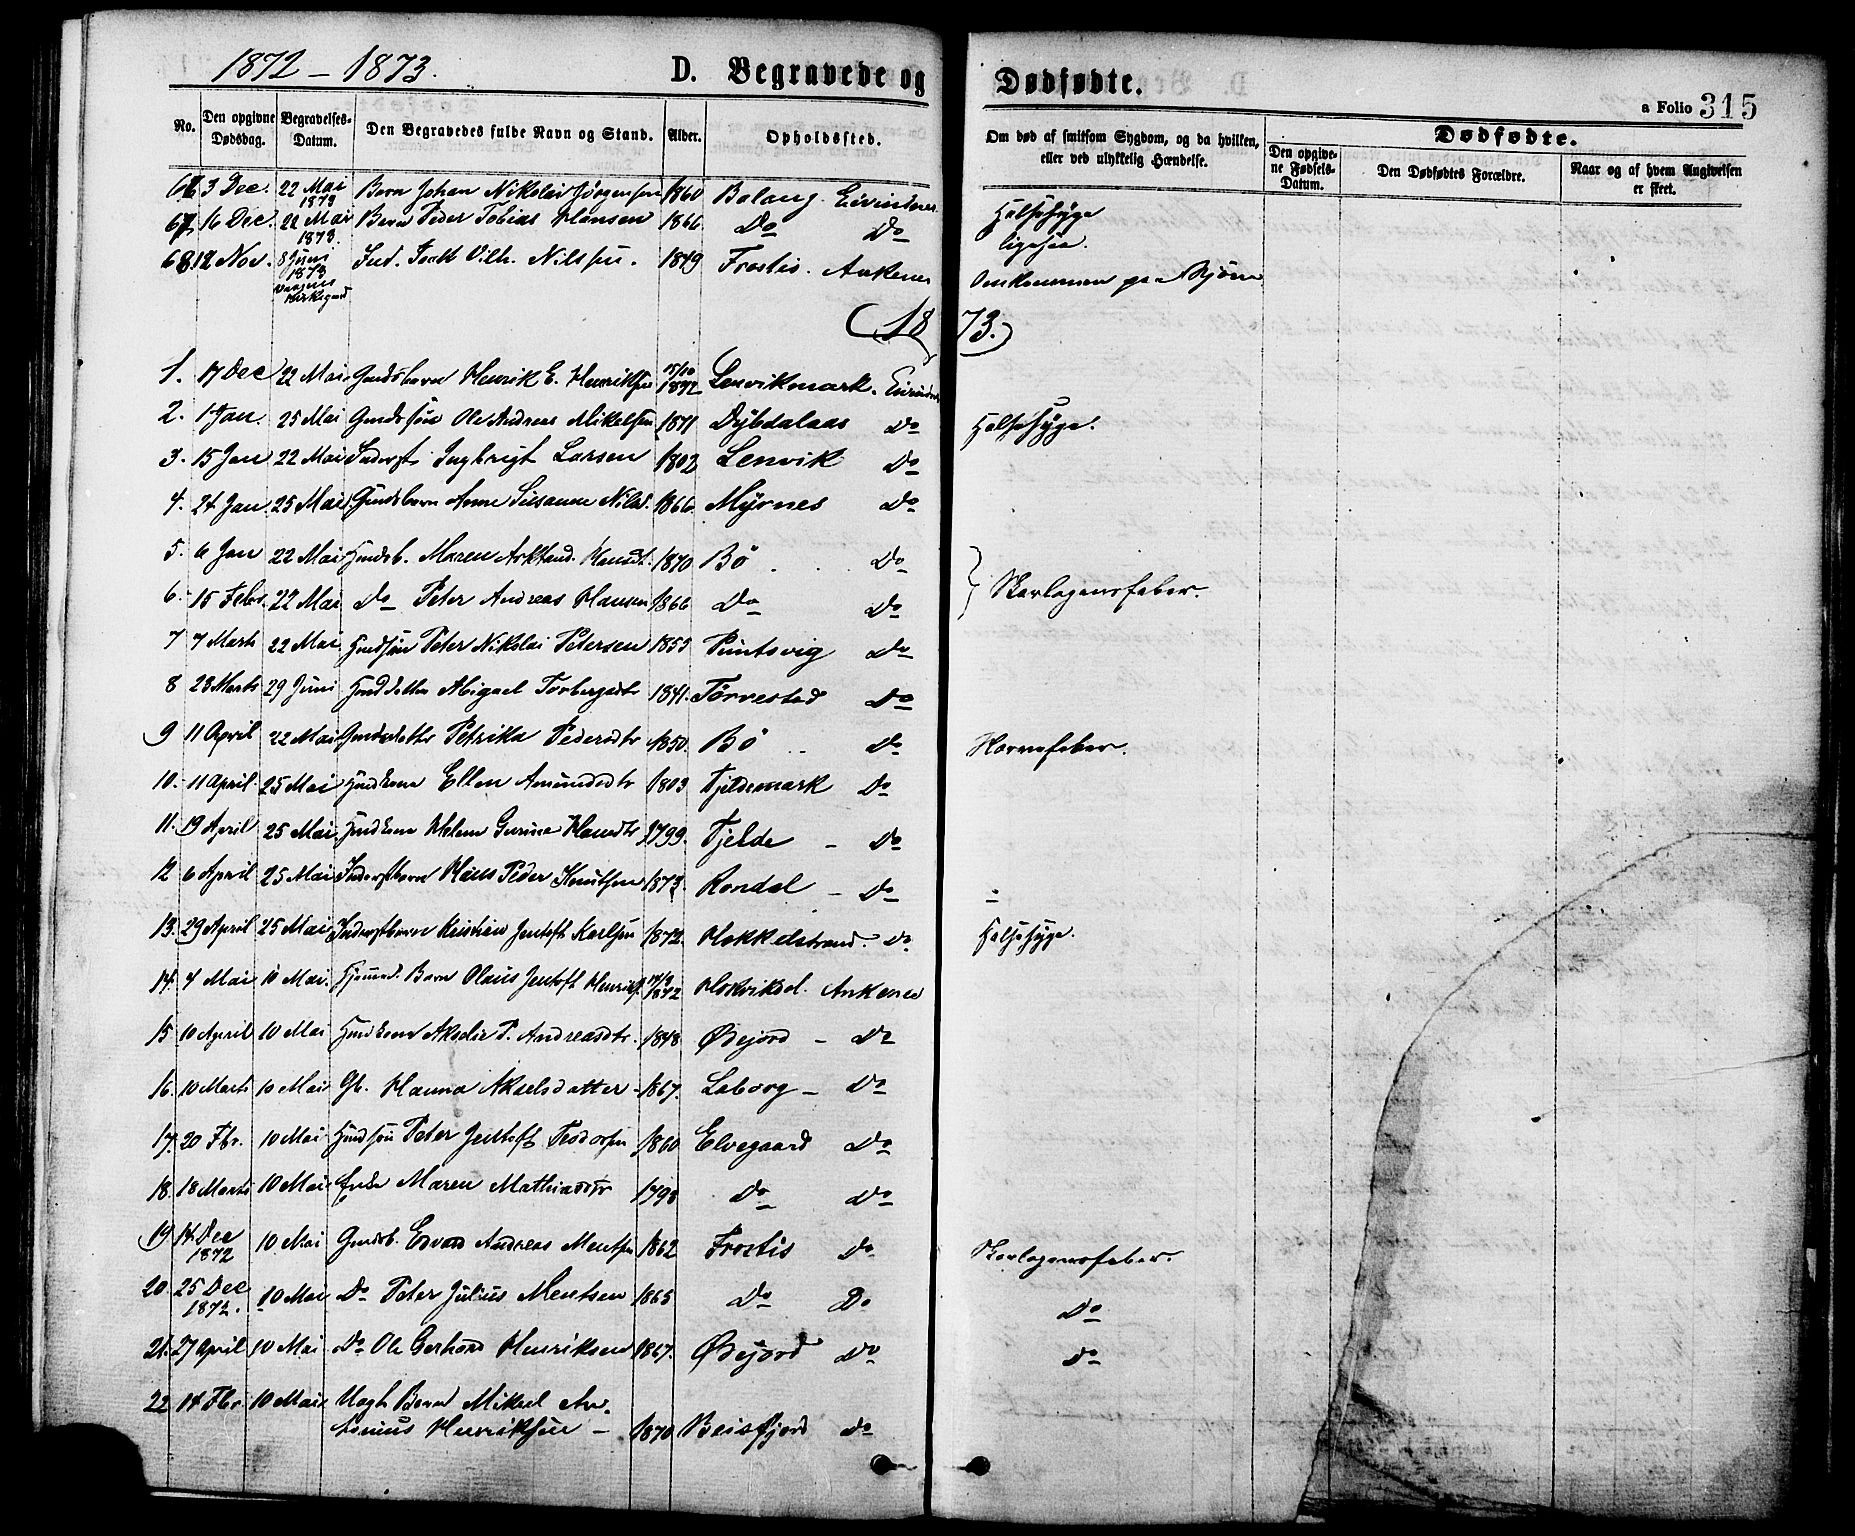 1872 - 1873.
D. Begravede og Dødfødte.
a Folio 315
No.
Den opgivne Dødsdag.
Begravelses-Datum.
Den Begravedes fulde Navn og Stand.
Alder.
Opholdssted.
Om død af smitsom Sygdom, og da hvilken, eller ved ulykkelig Hændelse.
Dødfødte.
Den opgivne Fødsels-Datum.
Den Dødfødtes Forældre.
Naar og af hvem Angivelsen er skeet.
66 3 Dec. 22 Mai 1873 Barn Johan Nikolai Jørgensen 1860 Balang. Eivindnes Halssyge
67 16 Dec. 22 Mai 1873. Barn Peder Tobias Hansen 1866 Do Do ligesaa.
68 12 Nov. 8 Juni 1873 Ind. Vilh. Nilssen. 1849 Frostis. Ankenes Omkommen paa Sjøen
(1873.)
1. 17 Dec 22 Mai Gmdsbarn Henrik E. Henriksen 15/10 1872 Lenvikmark. Eivindnes
2. 1 Jan. 25 Mai Gmdssøn Ole Andreas Mikelsen 1871 Dybdalaas Do Halssyge.
3. 15 Jan 22 Mai Inderst Ingbrigt Larsen 1802 Lenvik Do
4. 24 Jan. 25 Mai Gmdsbarn Anne Susanne Nilsd. 1866 Myrnes Do
5. 6 Jan 22 Mai Hmdsb. Maren Hansdt. 1870 Bø Do
6. 15 Febr. 22 Mai Do Peter Andreas Hansen 1866 Do Do Skarlagensfeber.
7 7 Marts 22 Mai Hmdssøn Peter Nikolai Petersen 1853 Puntsvig Do
8 28 Marts 29 Juni Hmddatter Abigael Torbergsdtr 1841. Tørvestad Do
9 11 April 22 Mai Gmdsdatter Petrika Pedersdtr 1850. Bø Do Nervefeber.
10. 11 April. 25 Mai Hmdkone Ellen Amundsdtr 1803 Fjeldsmark Do
11. 19 April 25 Mai Hmdkone Helene Gurine Hansdtr 1799. Fjelde - Do
12 6 April 25 Mai Inderstbarn Hans Peder Knutsen 1873. Rondal - Do
13. 29 April 25 Mai Inderstbarn Kristian Jentoft Karlsen 1872. Hokkelstrand. Do Halssyge.
14. 4 Mai 10 Mai. Barn Olaus Jentoft Henriks. 1872 Hokviksd. Ankenes
15 10 April 10 Mai Hmdkone P. Andreasdtr. 1848 Øsejord - Do
16. 10 Marts 10 Mai Gb. Hanna Akselsdatter - 1867. Leborg - Do
17. 20 Fbr. 10 Mai Hmdsøn Peter Jentoft Teodorsen 1860 Elvegaard Do
18. 18 Marts 10 Mai Enke Maren Mathiasdtr 1798 Do Do
19 14 Dec 1872 10 Mai Gmdsb. Edvard Andreas Mentsen 1862 Frostis Do Skarlagensfeber.
20. 25 Dec 1872. 10 Mai Do Peter Julius Mentsen 1865 Do Do Do
21. 27 April 10 Mai Do Ole Gerhard Henriksen 1867. Øsejord Do Do
22 14 Fbr 10 Mai Uægt Barn Mikael An-
tonius Henriksen - 1870 Beisfjord Do